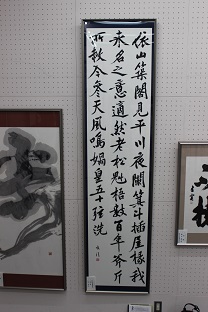 依山築閣見平川夜闌箕斗插屋椽我
来名之意適然老松魁梧數百年斧斤
所赦今參天風鳴媧皇五十弦洗